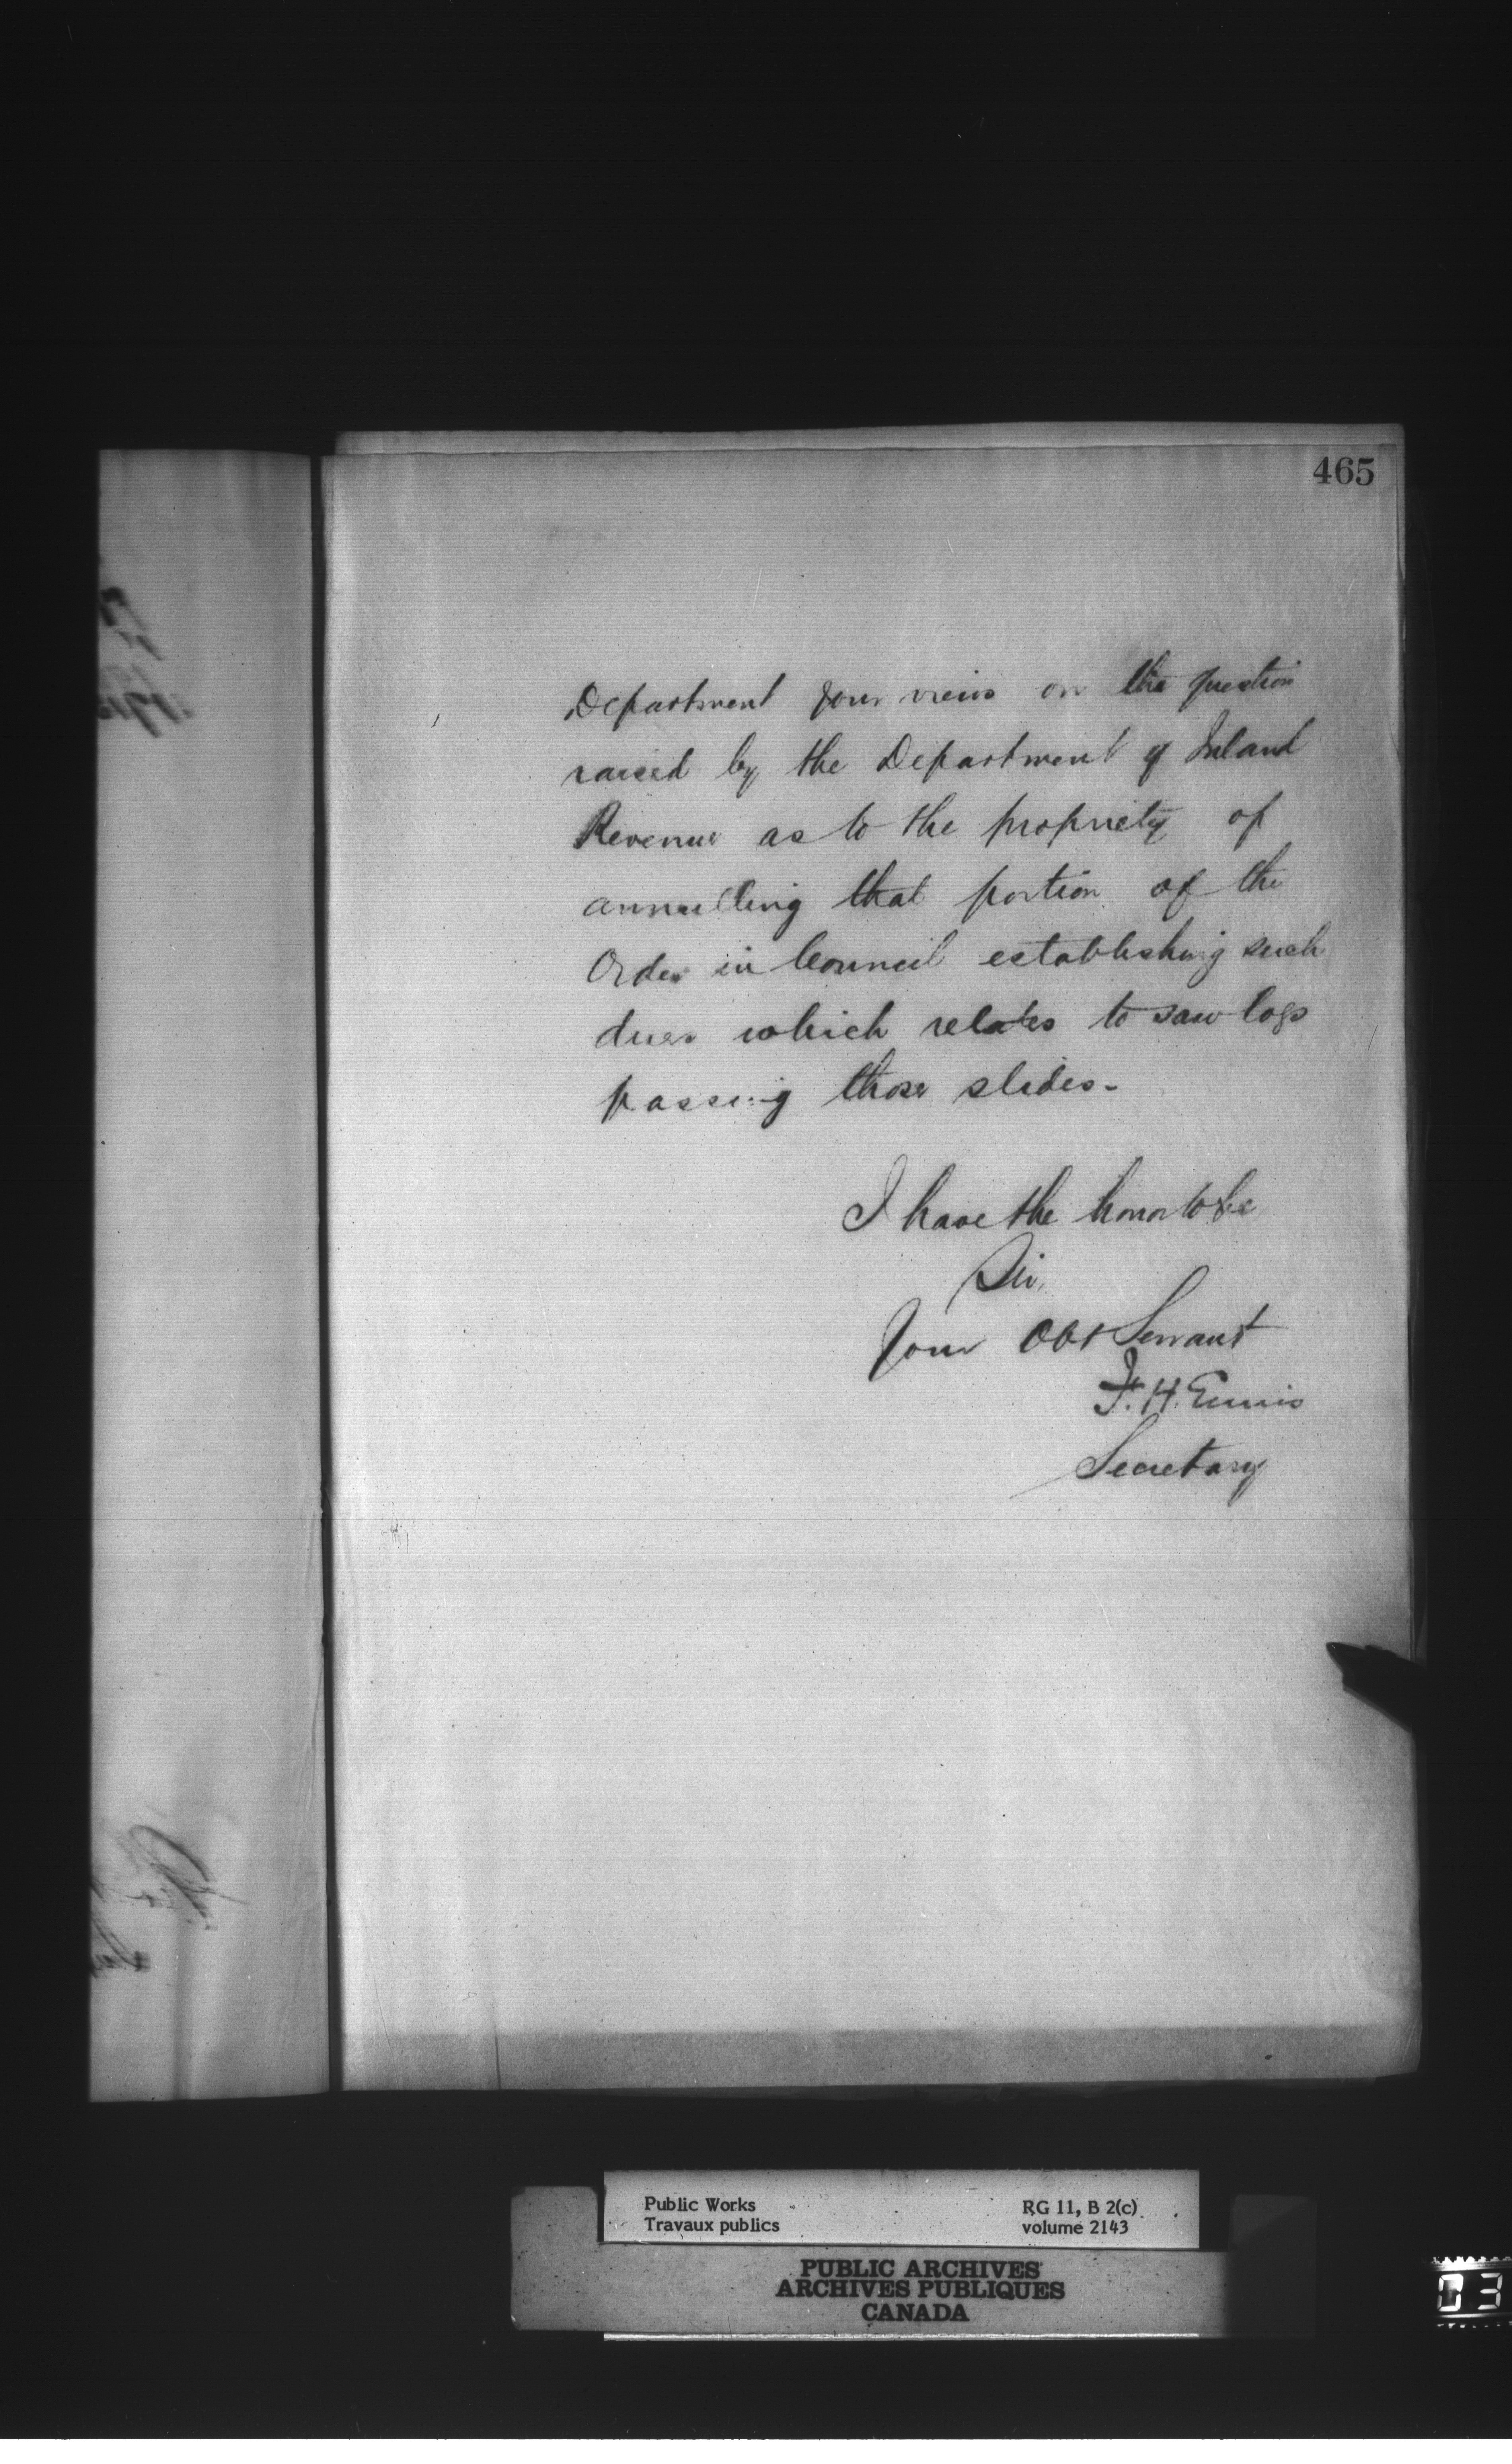 465
Department your views on the question
raised by the Department of Inland
Revenue as to the propriety of
annulling that portion of the
Order in Council establishing such
dues which relates to saw logs
passing those slides-
I have the honor to be
Sir,
Your Obt Servant
F. H. Ennis
Secretary
Public Works
Travaux publics
RG 11, B 2(c)
volume 2143
PUBLIC ARCHIVES
ARCHIVES PUBLIQUES
CANADA
03